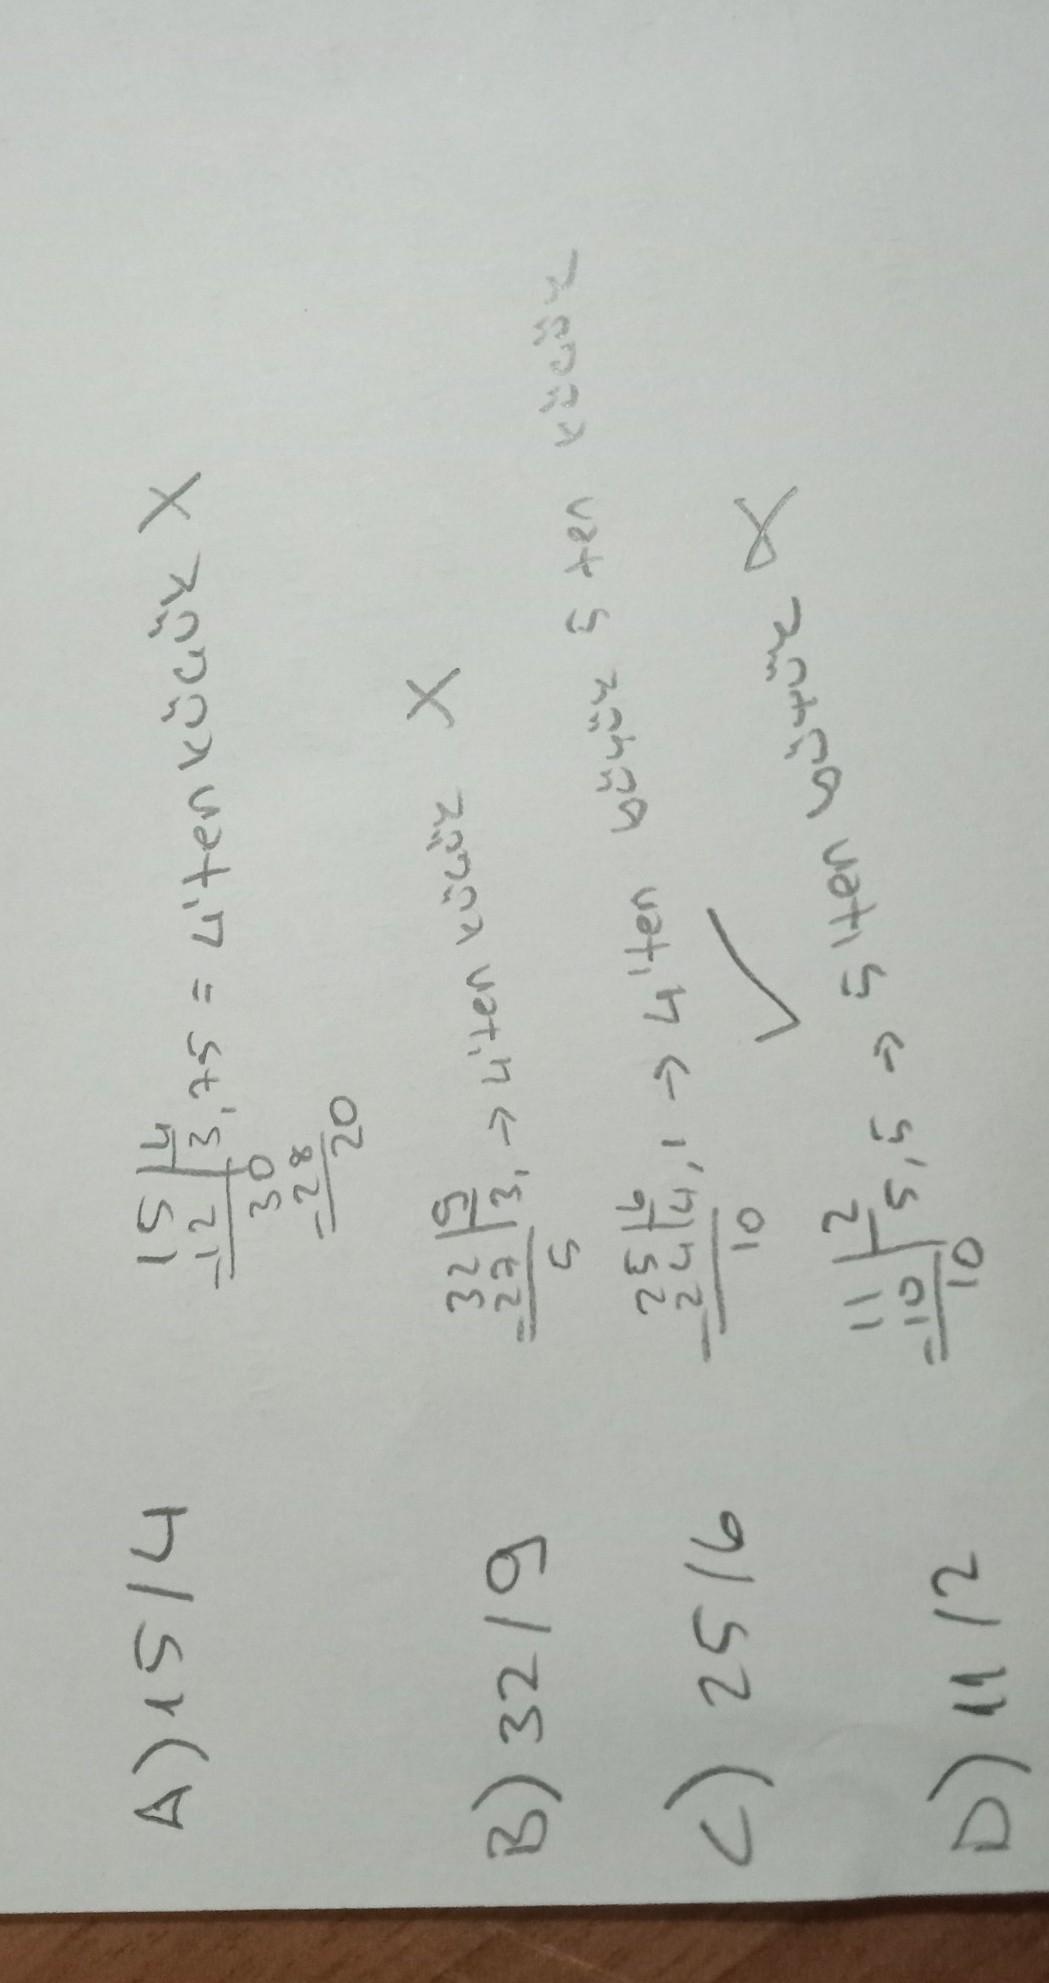 A) 15/4
15 | 4
-12 | 3,75 = 4'ten küçük X
30
-28
20
B) 32/9
32 | 9
-27 | 3, → 4'ten küçük X
5
C) 25/6
25 | 6
-24 | 4,1 → 4'ten büyük 5 ten küçük
10 ✓
D) 11/2
11 | 2
-10 | 5,5 → 5'ten büyük X
10